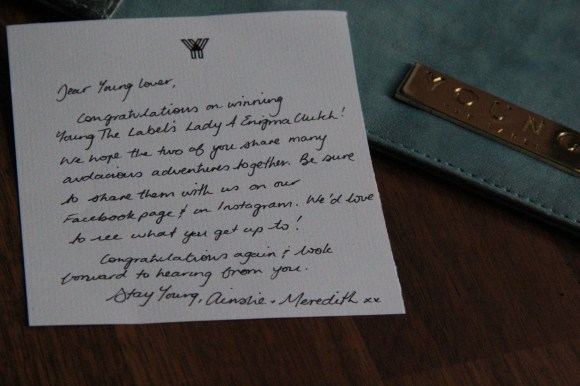 Dear Young Lover,
Congratulations on winning
Young The Label's Lady A Enigma Clutch!
We hope the two of you share many
audacious adventures together. Be sure
to share them with us on our
Facebook page & on Instagram. We'd love
to see what you get up to!
Congratulations again & look
forward to hearing from you.
Stay Young, Ainslie + Meredith xx
YOUNG
THE LABEL